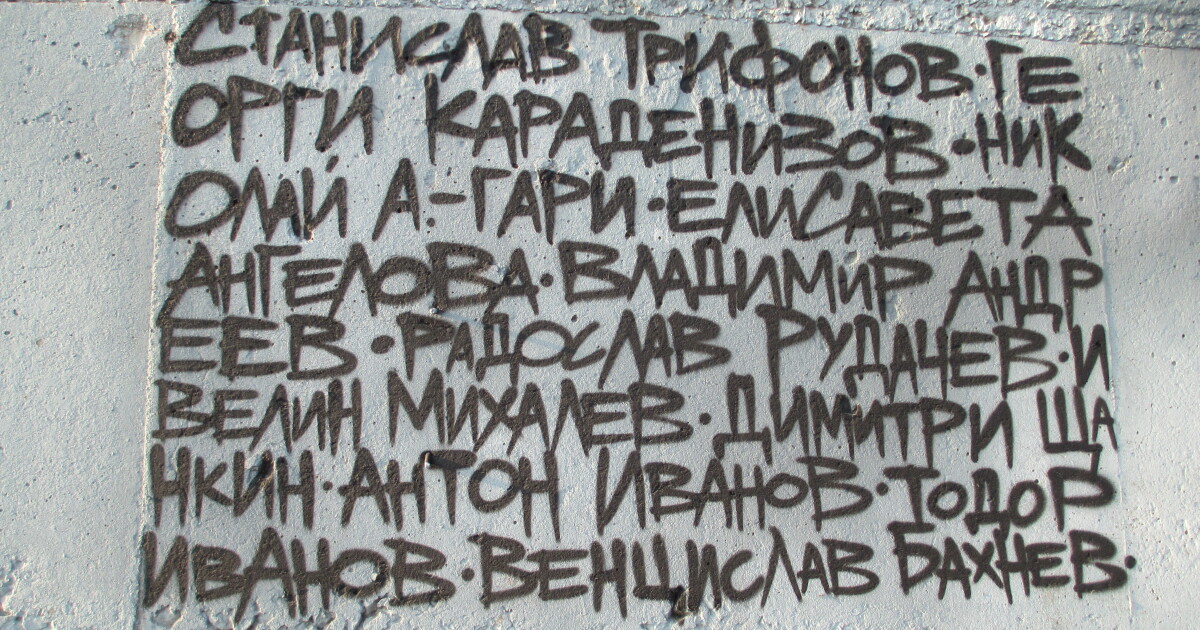 СТАНИСЛАВ ТРИФОНОВ·ГЕ
ОРГИ КАРАДЕНИЗОВ·НИК
ОЛАЙ А.-ГАРИ·ЕЛИСАВЕТА
АНГЕЛОВА·ВЛАДИМИР АНДР
ЕЕВ·РАДОСЛАВ РУДАЧЕВ·И
ВЕЛИН МИХАЛЕВ·ДИМИТРИ ЩА
НКИН·АНТОН ИВАНОВ·ТОДОР
ИВАНОВ·ВЕНЦИСЛАВ БАХНЕВ·